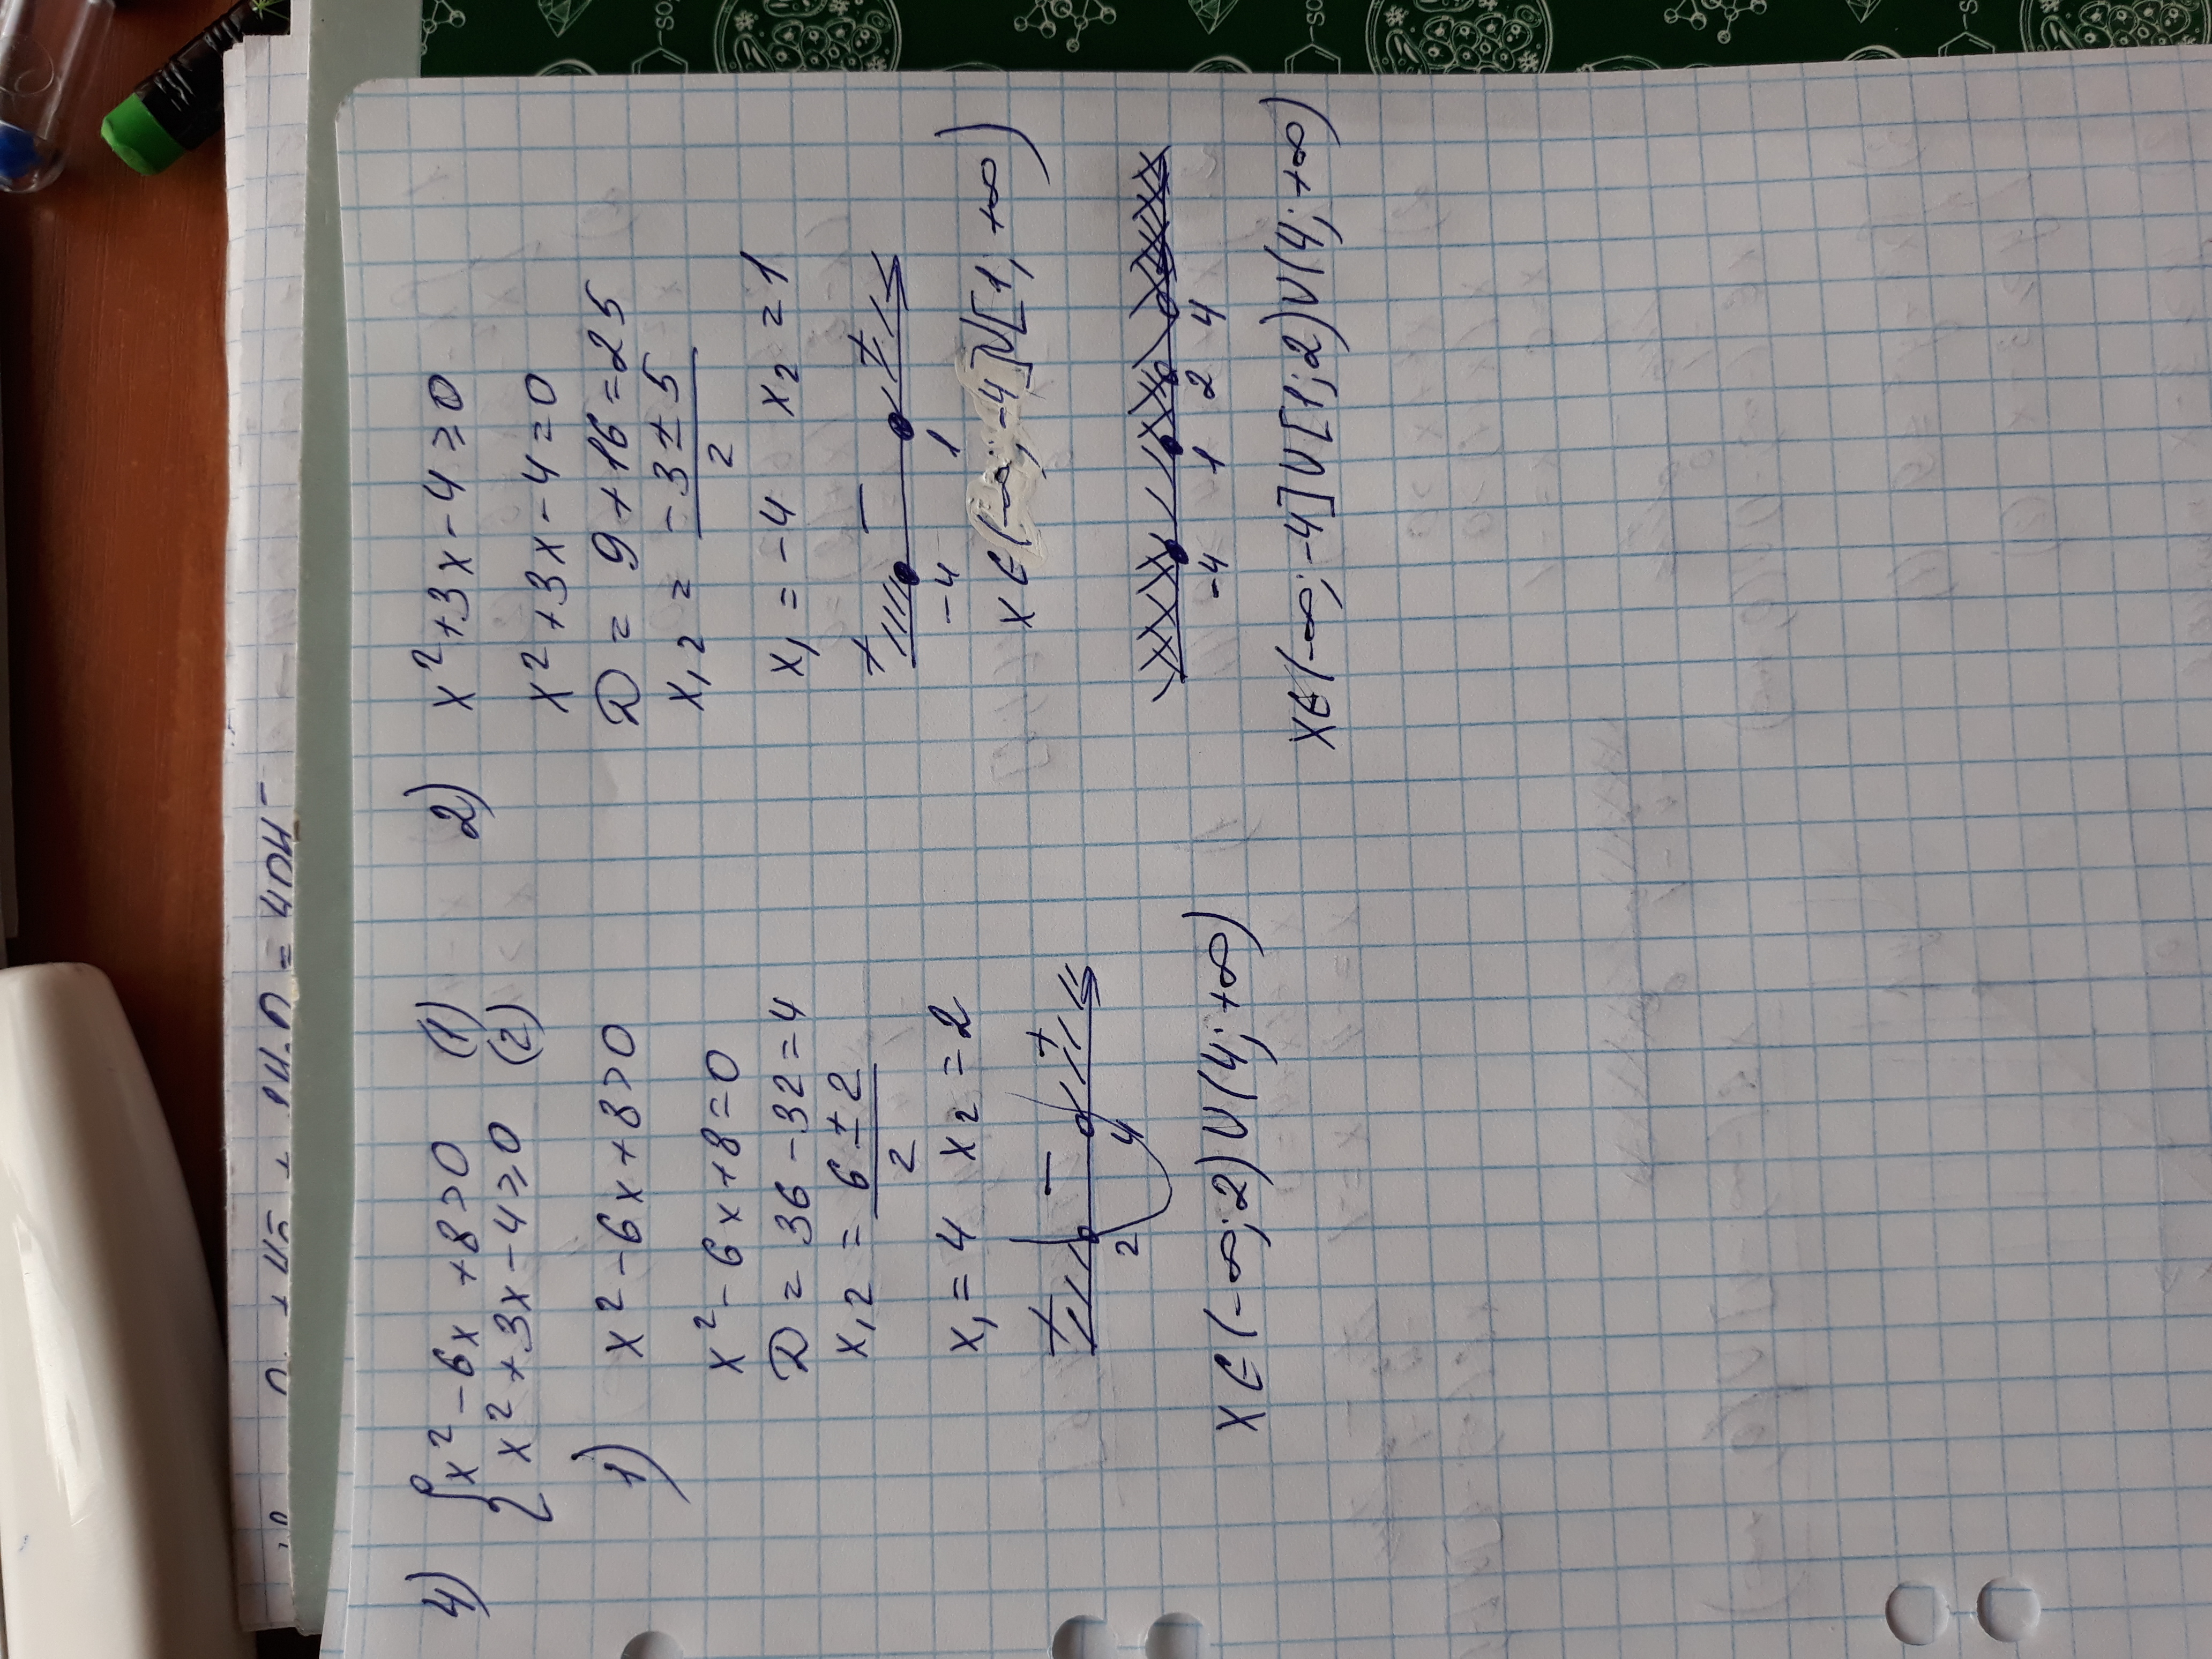 4) { x² - 6x + 8 > 0 (1)
x² + 3x - 4 ≥ 0 (2)
1) x² - 6x + 8 > 0
x² - 6x + 8 = 0
D = 36 - 32 = 4
x₁,₂ = (6 ± 2) / 2
x₁ = 4 x₂ = 2
+ − +
2 4
x ∈ (-∞; 2) ∪ (4; +∞)
2) x² + 3x - 4 ≥ 0
x² + 3x - 4 = 0
D = 9 + 16 = 25
x₁,₂ = (-3 ± 5) / 2
x₁ = -4 x₂ = 1
+ − +
-4 1
x ∈ (-∞; -4] ∪ [1; +∞)
-4 1 2 4
x ∈ (-∞; -4] ∪ [1; 2) ∪ (4; +∞)